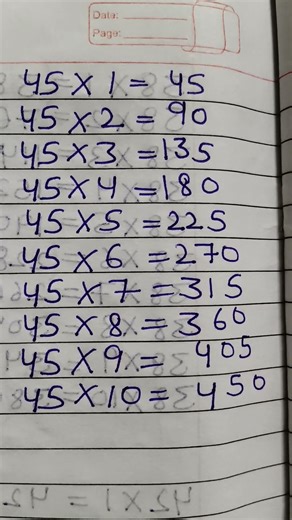 Date:
Page:
45 × 1 = 45
45 × 2 = 90
45 × 3 = 135
45 × 4 = 180
45 × 5 = 225
45 × 6 = 270
45 × 7 = 315
45 × 8 = 360
45 × 9 = 405
45 × 10 = 450